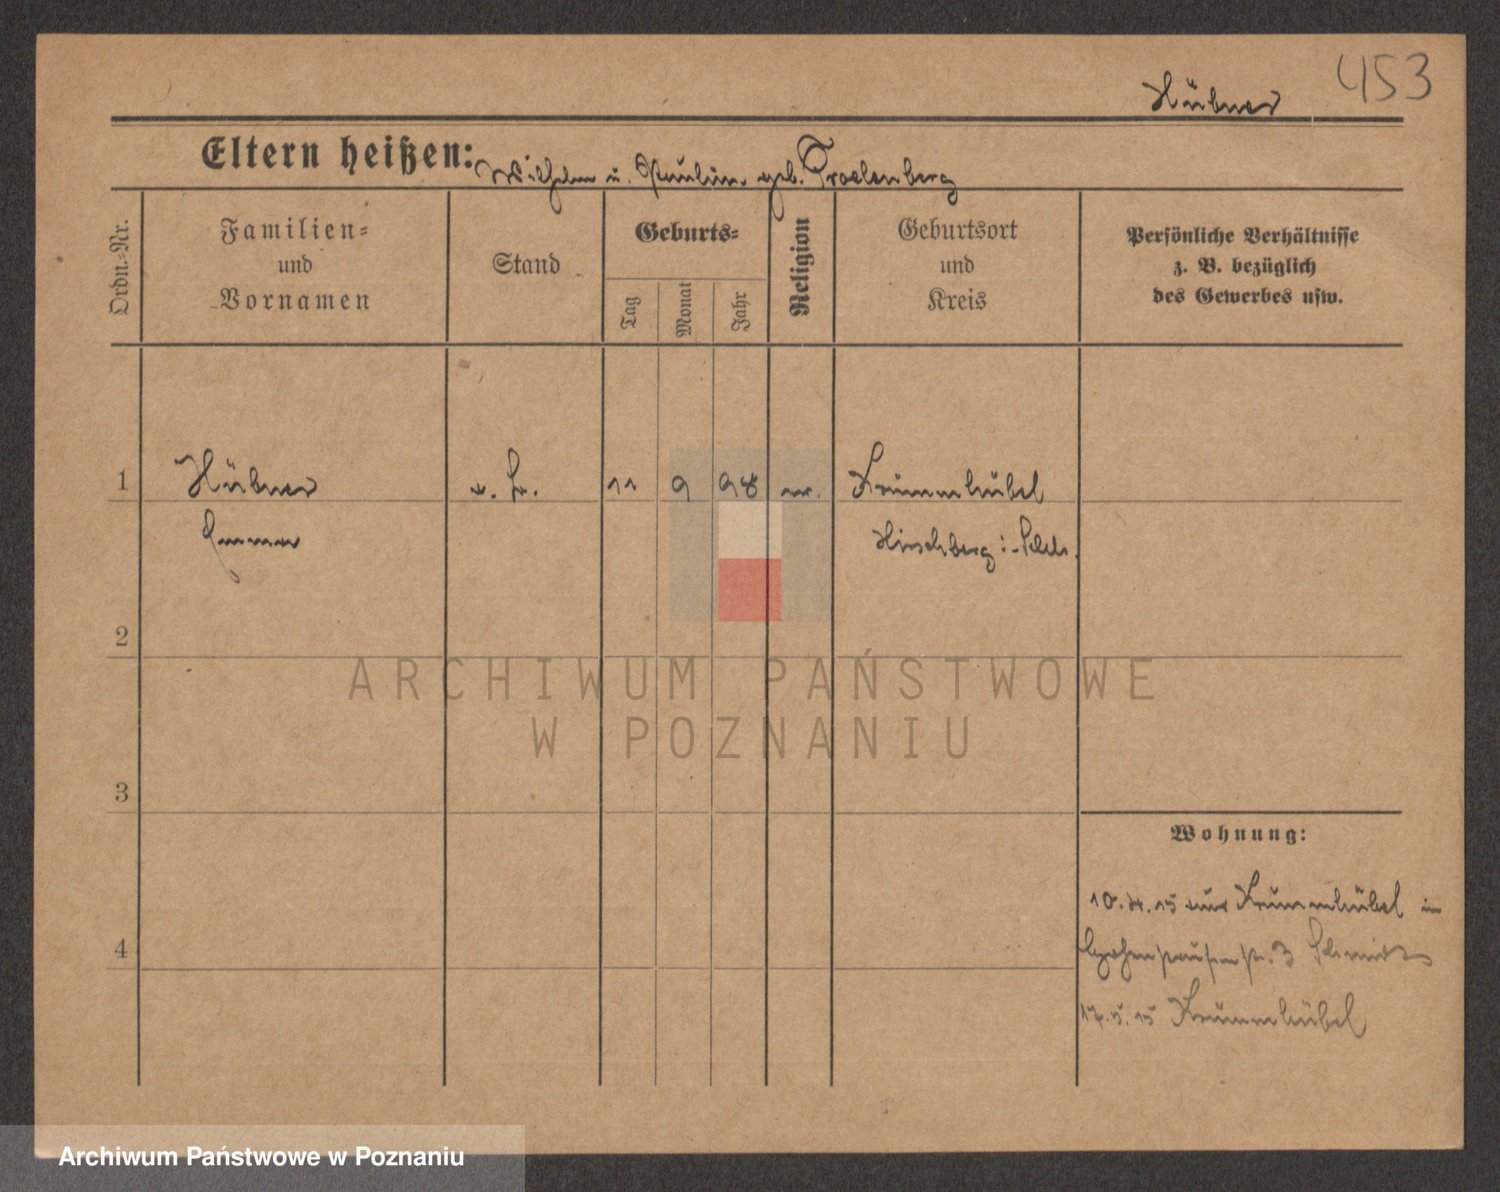 453
Hübner
Eltern heißen: Wilhelm u. Paulin. geb.
Ordn.-Nr.
Familien-
und
Vornamen
Stand
Geburts-
Tag
Monat
Jahr
Religion
Geburtsort
und
Kreis
Persönliche Verhältnisse
z. B. bezüglich
des Gewerbes usw.
1 Hübner 11 9 98 Krummhübel
Emma Hirschberg i. Schls.
2
ARCHIWUM PAŃSTWOWE
W POZNANIU
3
Wohnung:
10.4.15 aus Krummhübel in
4 Hohenstaufenstr. 3
17.5.15 Krummhübel
Archiwum Państwowe w Poznaniu